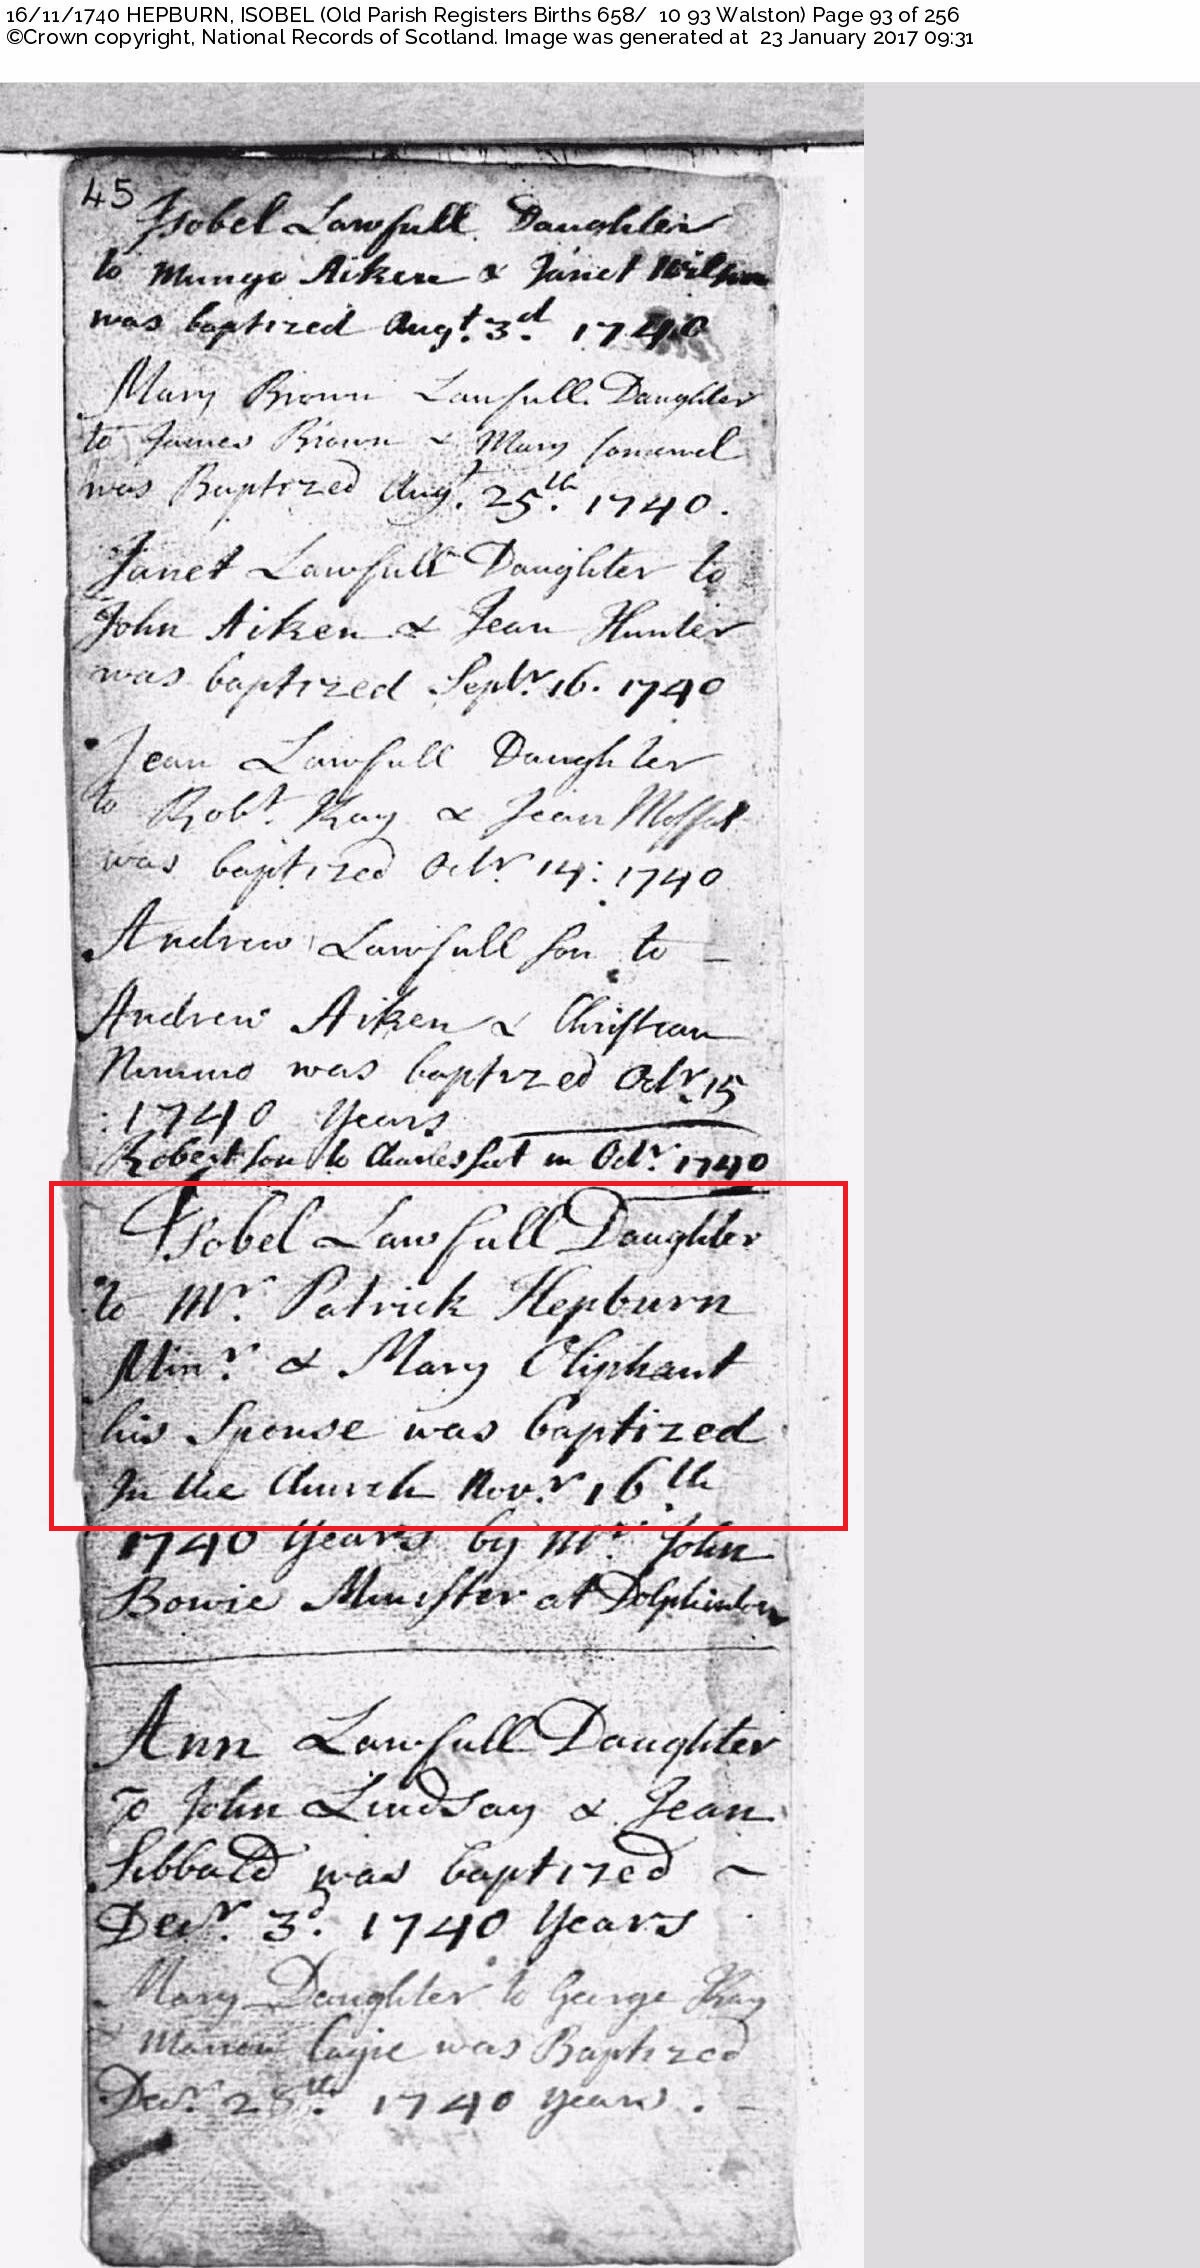 16/11/1740 HEPBURN, ISOBEL (Old Parish Registers Births 658/ 10 93 Walston) Page 93 of 256
©Crown copyright, National Records of Scotland. Image was generated at 23 January 2017 09:31
45
Isobel Lawfull Daughter
to Mungo Aiken & Janet Wilson
was baptized Augt. 3d. 1740
Mary Brown Lawfull Daughter
to James Brown & Mary
was Baptized Augt. 25th. 1740.
Janet Lawfull Daughter to
John Aiken & Jean Hunter
was baptized Septr. 16. 1740
Jean Lawfull Daughter
to Robt. Kay & Jean Moffat
was baptized Octr. 14: 1740
Andrew Lawfull son to
Andrew Aiken & Christian
Nimmo was baptized Octr. 15
1740 Years
Robert son to Charles in Octr. 1740
Isobel Lawfull Daughter
to Mr. Patrick Hepburn
Minr. & Mary Oliphant
his Spouse was baptized
In the Church Novr. 16th
1740 Years by Mr. John
Bowie Minister at Dolphinton
Ann Lawfull Daughter
To John Lindsay & Jean
Sibbald was baptized ~
Decr. 3d. 1740 Years
Mary Daughter to George Kay
& was Baptized
Decr. 28th. 1740 years. -